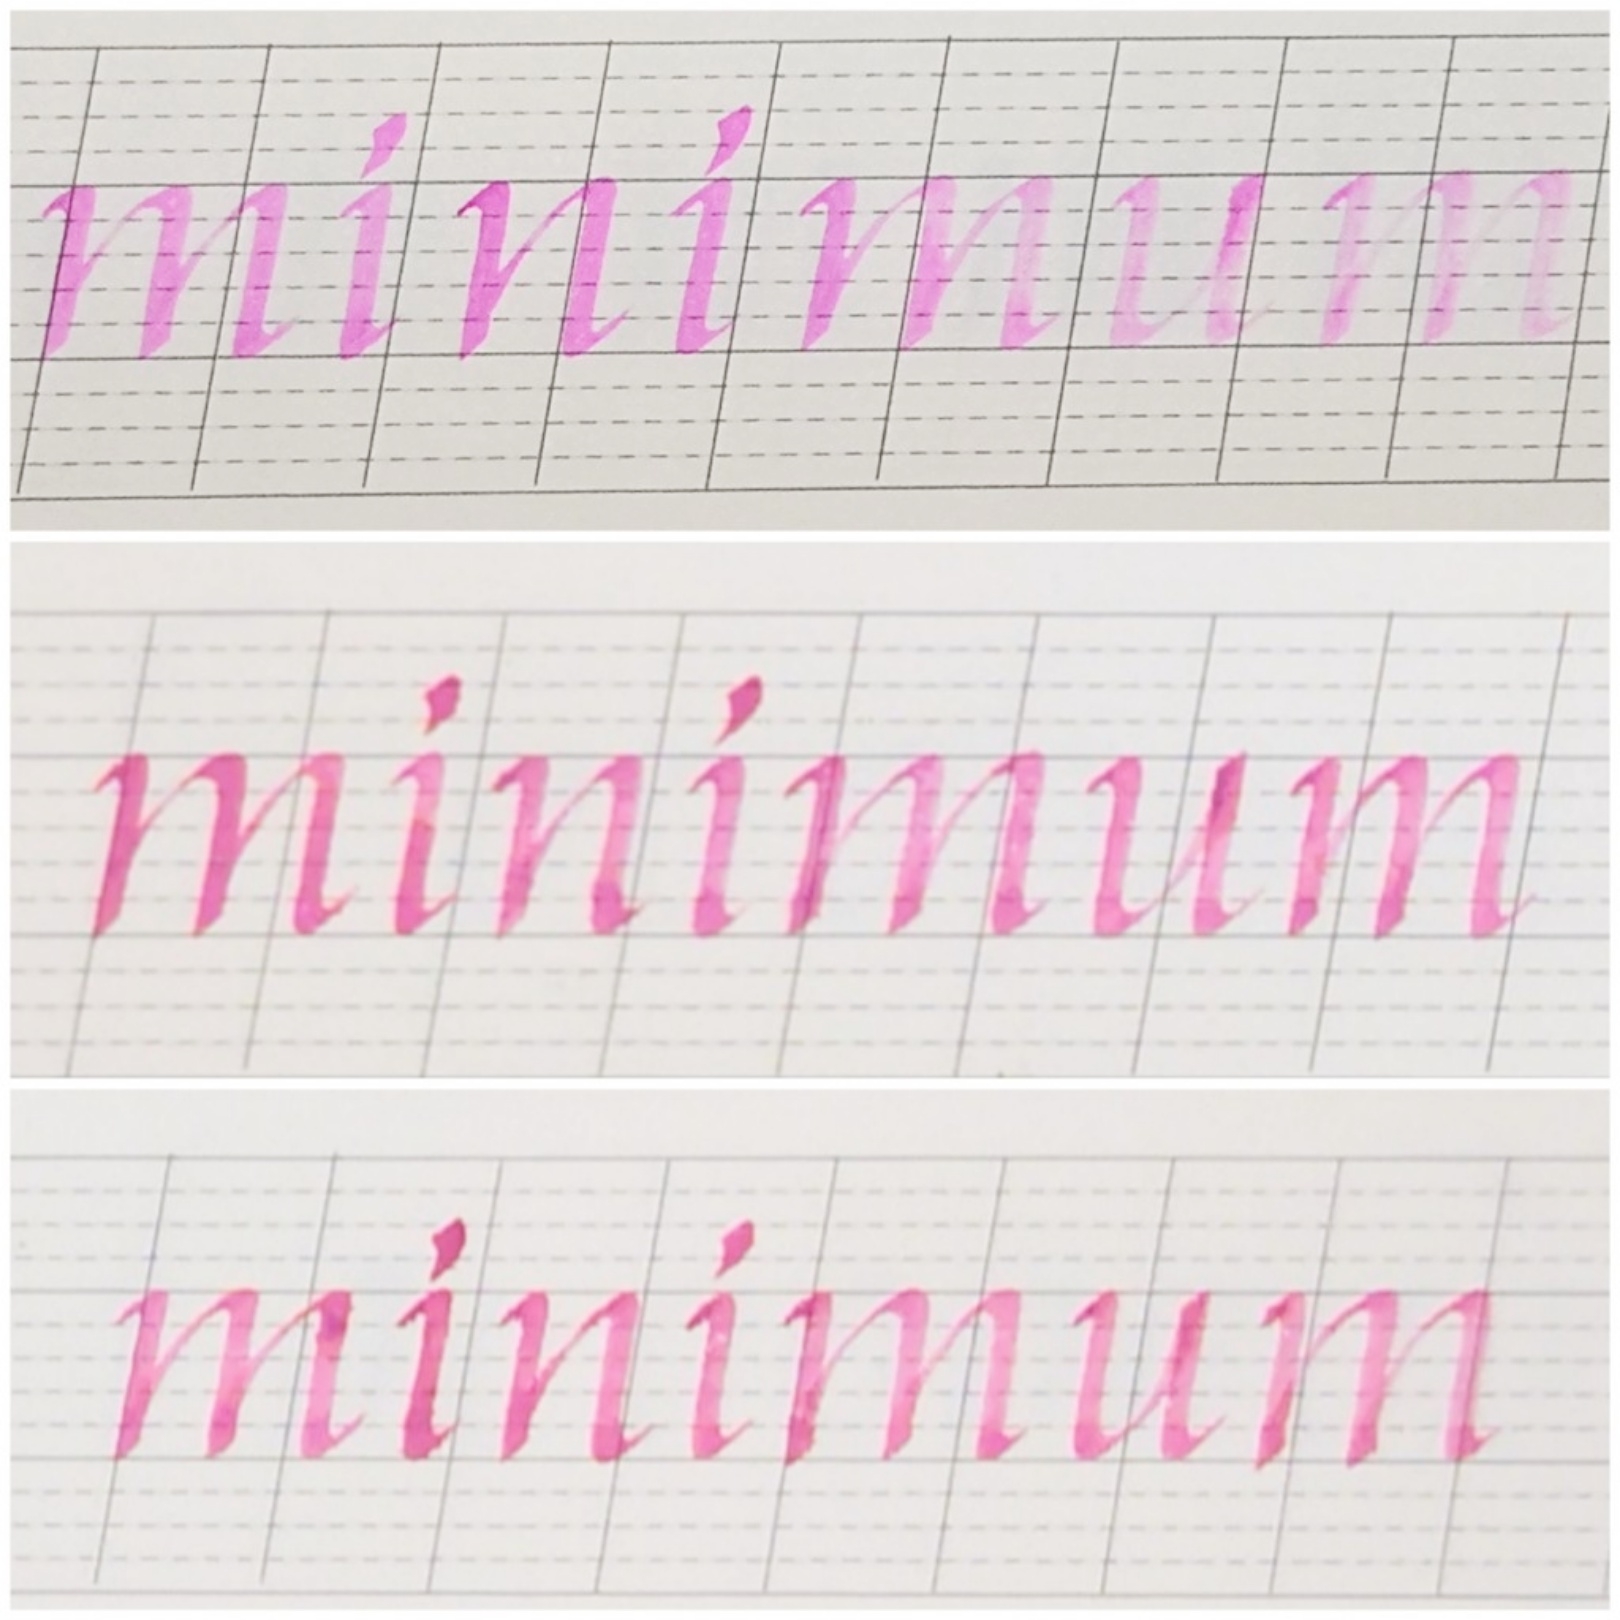 minimum
minimum
minimum